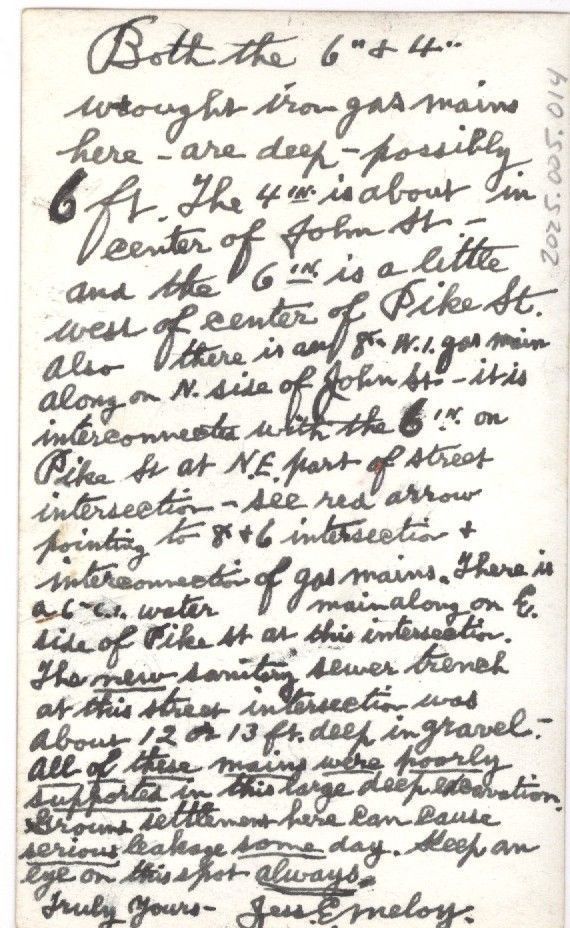 Both the 6" & 4"
wrought iron gas mains
here - are deep - possibly
6 ft. The 4 IN. is about in
center of John St. -
and the 6 IN. is a little
west of center of Pike St.
Also there is an 8" W.I. gas main
along on N. side of John St - it is
interconnected with the 6 IN. on
Pike St at N.E. part of street
intersection - see red arrow
pointing to 8 & 6 intersection &
interconnection of gas mains. There is
a 6" C.I. water main along on E.
side of Pike St at this intersection.
The new sanitory sewer trench
at this street intersection was
about 12 or 13 ft. deep in gravel. -
All of these mains were poorly
supported in this large deep excavation.
Ground settlement here can cause
serious leakage some day. Keep an
eye on this spot always.
Truly Yours - Jess E Meloy.
2025.005.014